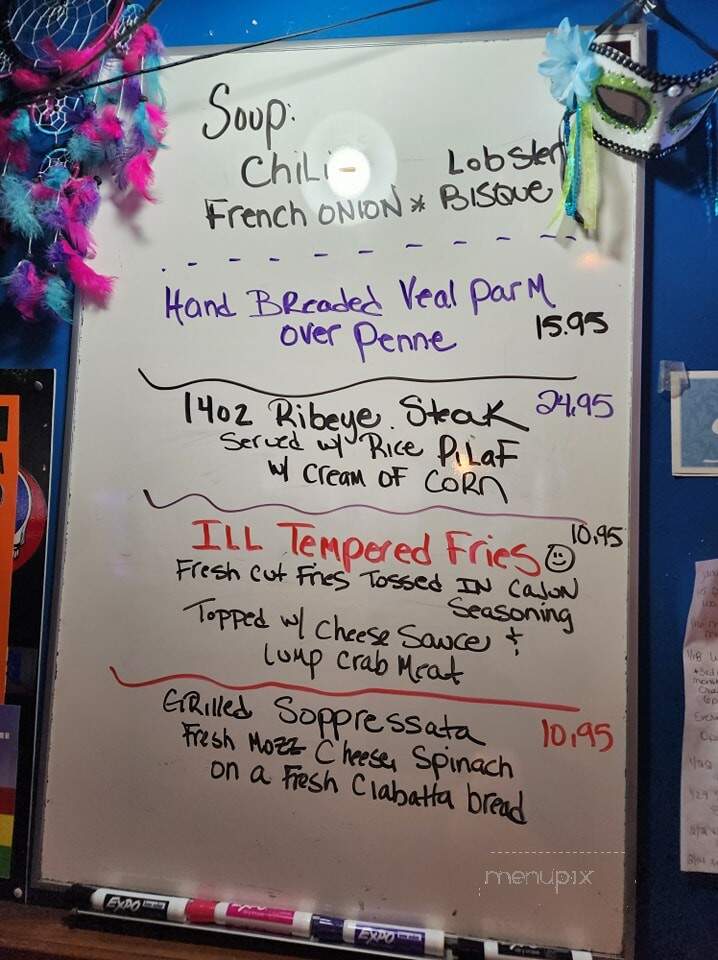 Soup:
Chili - Lobster
French ONION * BISQUE
Hand BReaded Veal Parm
over Penne 15.95
14oz Ribeye Steak 24.95
Served w/ Rice PiLaF
w/ Cream OF CoRn
ILL Tempered Fries 10.95
Fresh Cut Fries Tossed IN CaJUN
Seasoning
Topped w/ Cheese Sauce +
Lump Crab Meat
GRilled Soppressata 10.95
Fresh Mozz Cheese, Spinach
on a Fresh Ciabatta bread
menupix
EXPO
EXPO